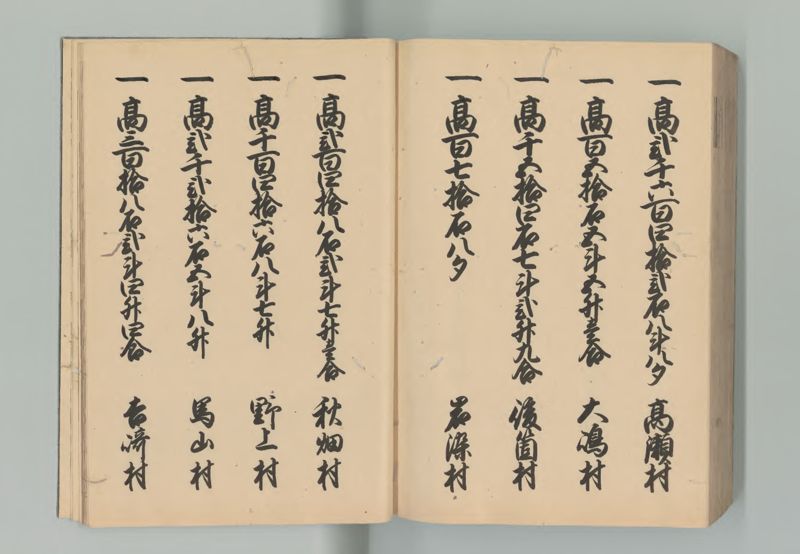 一 高弐千六百四拾弐石八斗八夕 高瀬村
一 高百五拾石五斗五升壱合 大嶋村
一 高千五拾四石七斗弐升九合 後箇村
一 高百七拾石八夕 岩染村
一 高弐百四拾八石弐斗七升壱合 秋畑村
一 高千百四拾六石八斗七升 野上村
一 高弐千弐拾六石五斗八升 馬山村
一 高三百拾八石弐斗四升四合 吉崎村